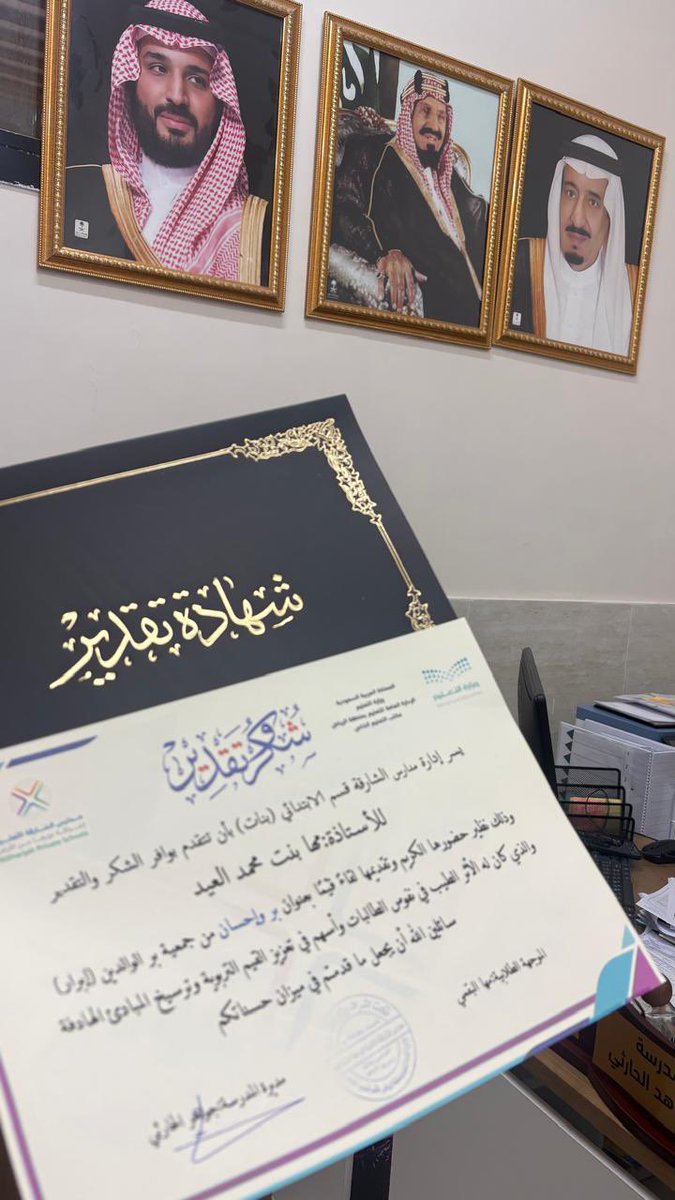 شهادة تقدير
وزارة التعليم
المملكة العربية السعودية
وزارة التعليم
الإدارة العامة للتعليم بمنطقة الرياض
شكر وتقدير
يسر إدارة مدارس الشارقة قسم الابتدائي (بنات) بأن تتقدم بوافر الشكر والتقدير
للأستاذة: مها بنت محمد العيد
وذلك نظير حضورها الكريم وتقديمها لقاءً قيمًا بعنوان بر وإحسان من جمعية بر الوالدين (إبرار)
والذي كان له الأثر الطيب في نفوس الطالبات وأسهم في تعزيز القيم التربوية وترسيخ المبادئ الهادفة
سائلين الله أن يجعل ما قدمتم في ميزان حسناتكم
الموجهة الطلابية: مها
مديرة المدرسة: جواهر الحارثي
Private Schools